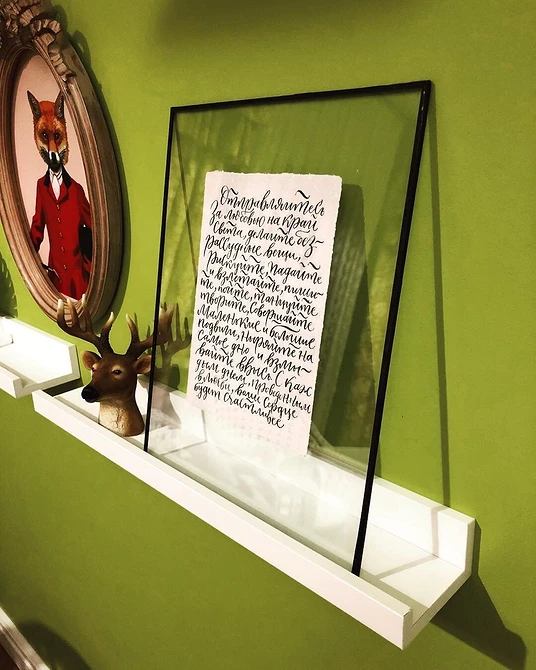 Отправляйтесь
за любовью на край
света, делайте без-
рассудные вещи,
рискуйте, падайте
и взлетайте, пиши-
те, пойте, танцуйте
творите, совершайте
маленькие и большие
подвиги, ныряйте на
самое дно и взмы-
вайте ввысь. С каж
дым днем, проведенным
в любви, ваше сердце
будет счастливее